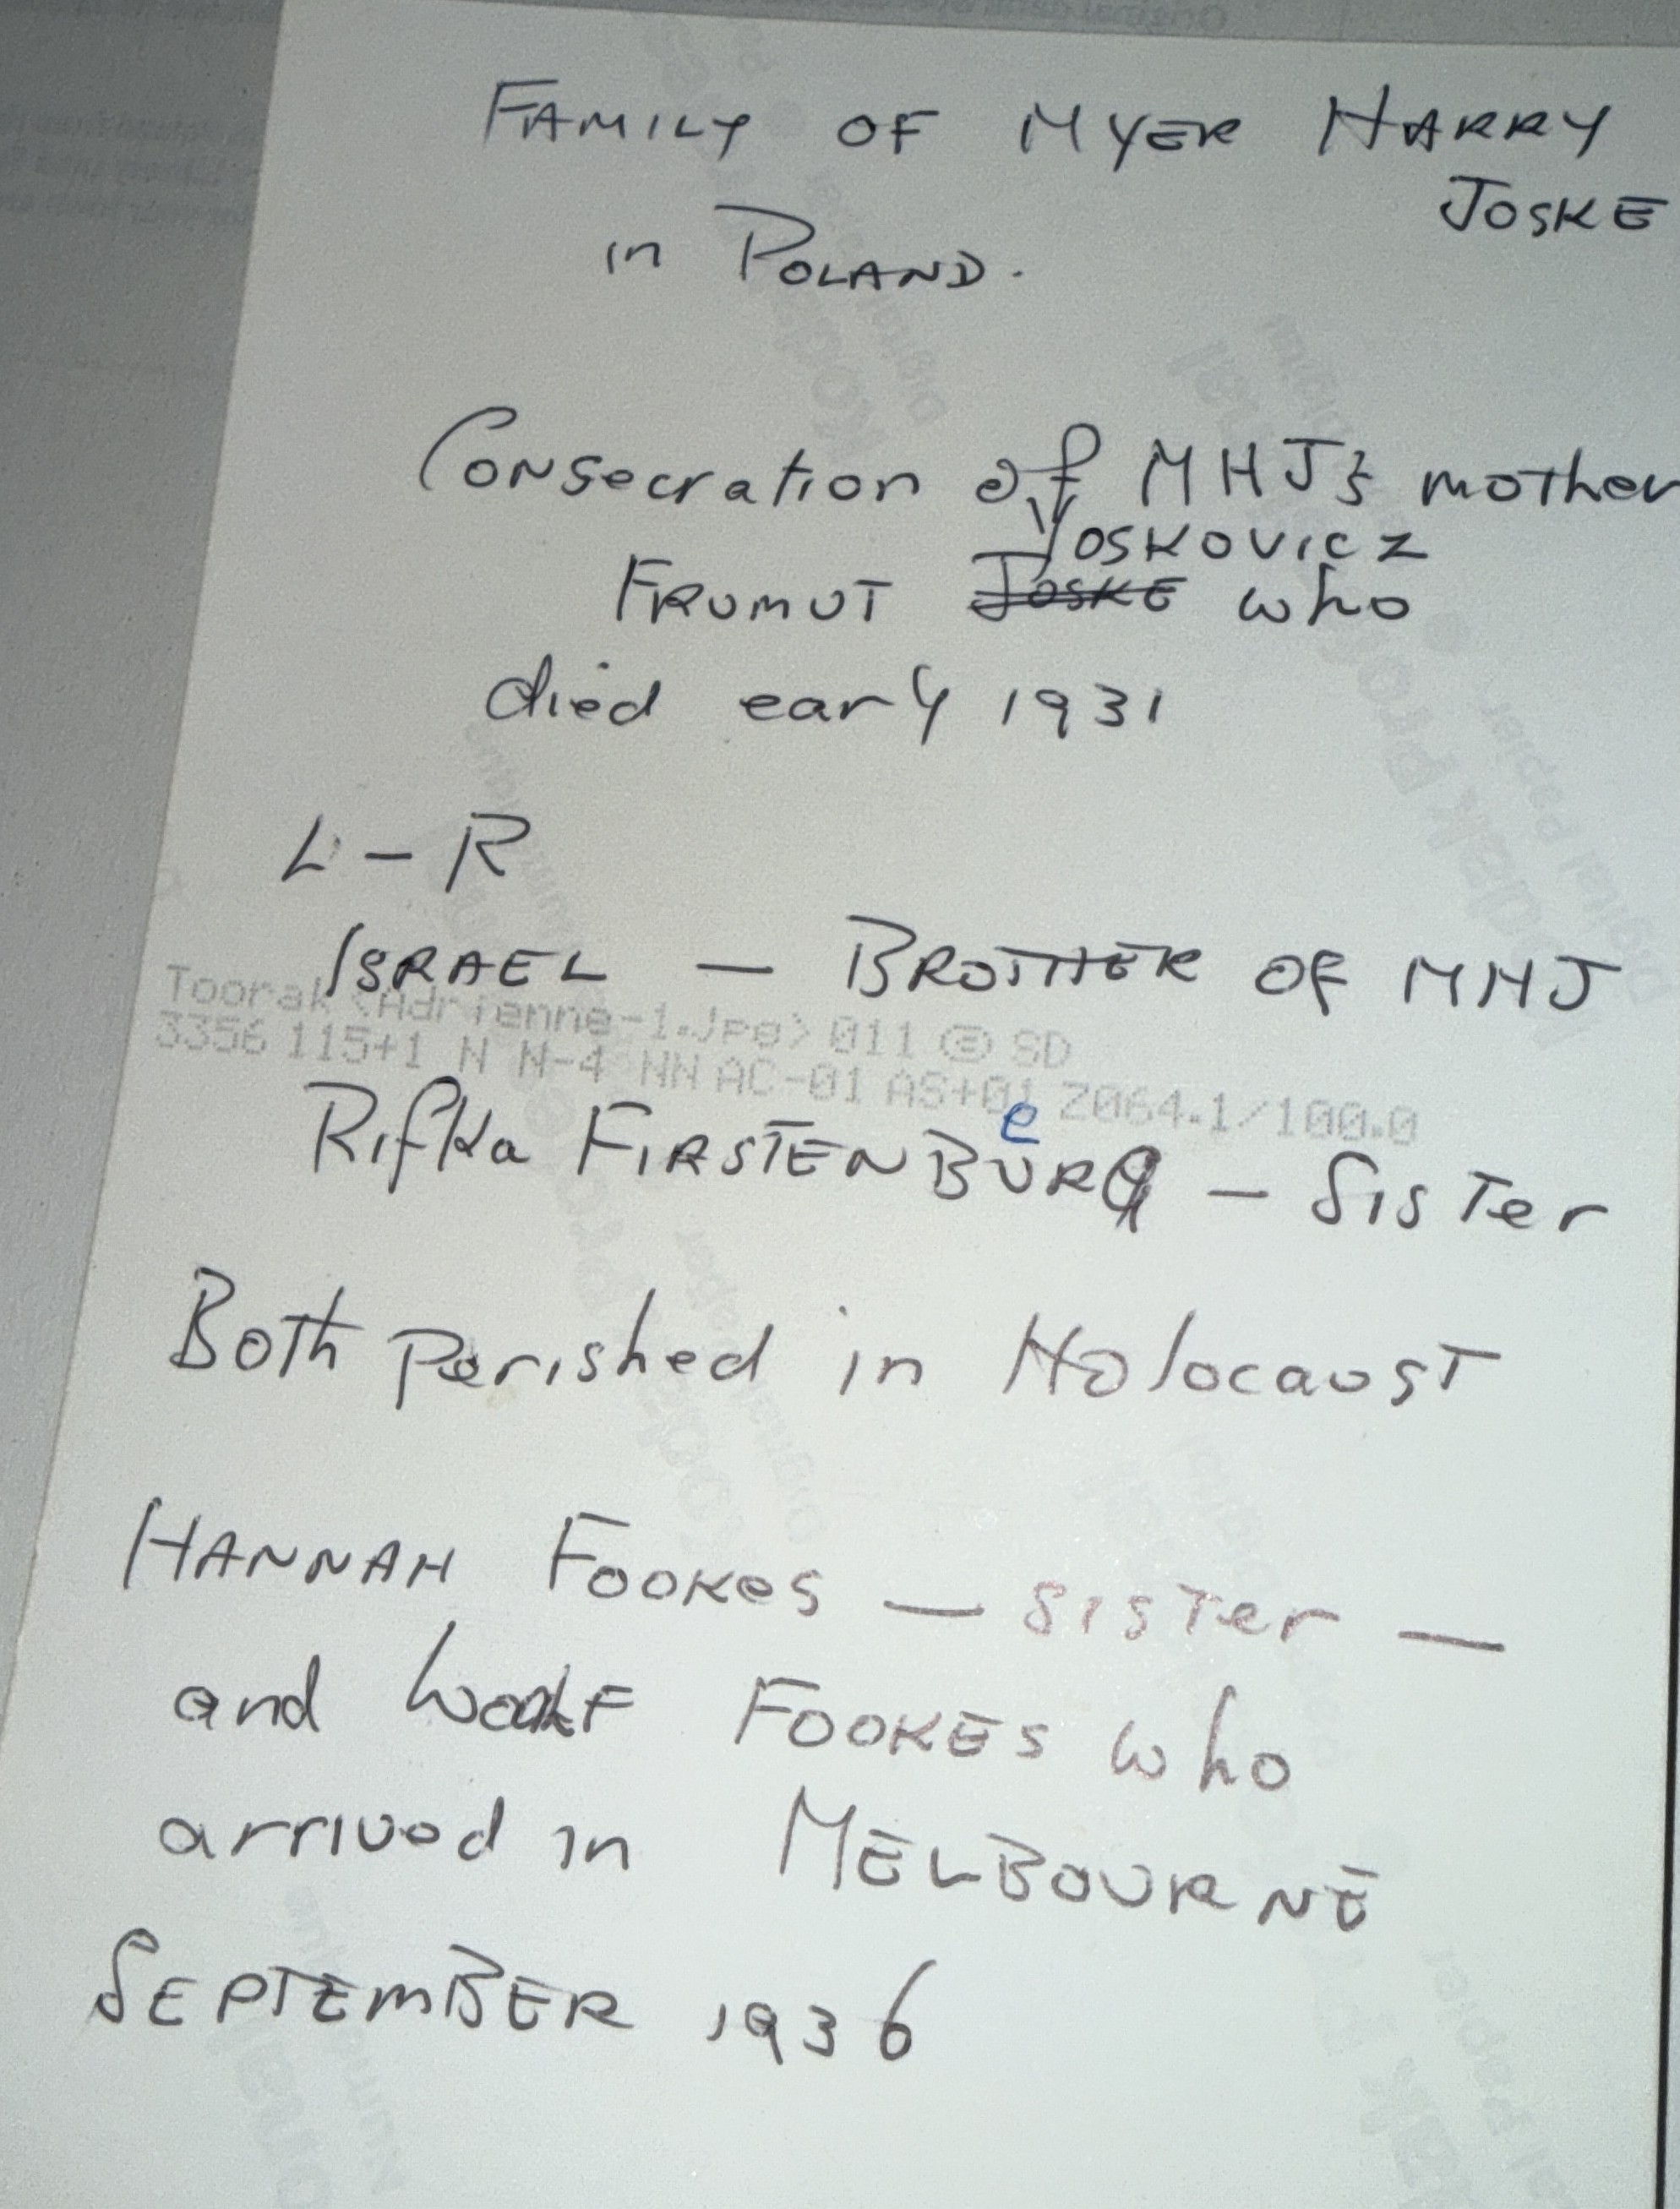 FAMILY OF MYER HARRY
JOSKE
in POLAND.
Consecration of MHJ's mother
YOSKOVICZ
FRUMUT JOSKE who
died early 1931
L - R
ISRAEL — BROTHER OF MHJ
Toorak <Adrienne-1.Jpg> 011 SD
3356 115+1 N N-4 NN AC-01 AS+01 Z064.1/100.0
e
Rifka FIRSTENBURG — Sister
Both Perished in Holocaust
HANNAH FOOKES — Sister —
and FOOKES who
arrived in MELBOURNE
SEPTEMBER 1936